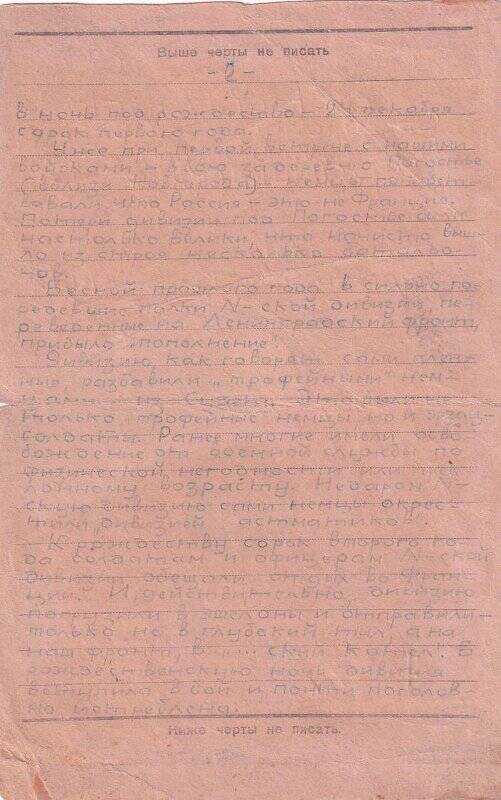 Выше черты не писать
- 2 -
в ночь под рождество - 24 декабря
сорок первого года.
Уже при первой встрече с нашими
войсками - в бою за деревню Погостье
немцы почувст
вовали, что Россия - это не Франция.
Потери дивизии под Погостье были
настолько велики, что начисто выш-
ло из строя несколько батальо
нов.
Весной прошлого года в сильно по
редевшие полки N-ской дивизии, пе-
реведенные на Ленинградский фронт,
прибыло „пополнение".
Дивизию как говорят сами плен-
ные, разбавили „трофейными" нем-
цами - из Судета. Это были не
только трофейные немцы но и
солдаты. Ранее многие имели осво
бождение от военной службы по
физической негодности или
клонному возрасту. Недаром N-
скую дивизию сами немцы окрес-
тили дивизией „астматиков".
К рождеству сорок второго го-
да солдатам и офицерам N-ской
дивизии обещали отдых во Фран
ции. И действительно, дивизию
погрузили в эшелоны и отправили
только не в глубокий тыл, а на
наш фронт, в ......ский котел. В
рождественскую ночь дивизия
вступила в бой и почти поголов-
но истреблена.
Ниже черты не писать.